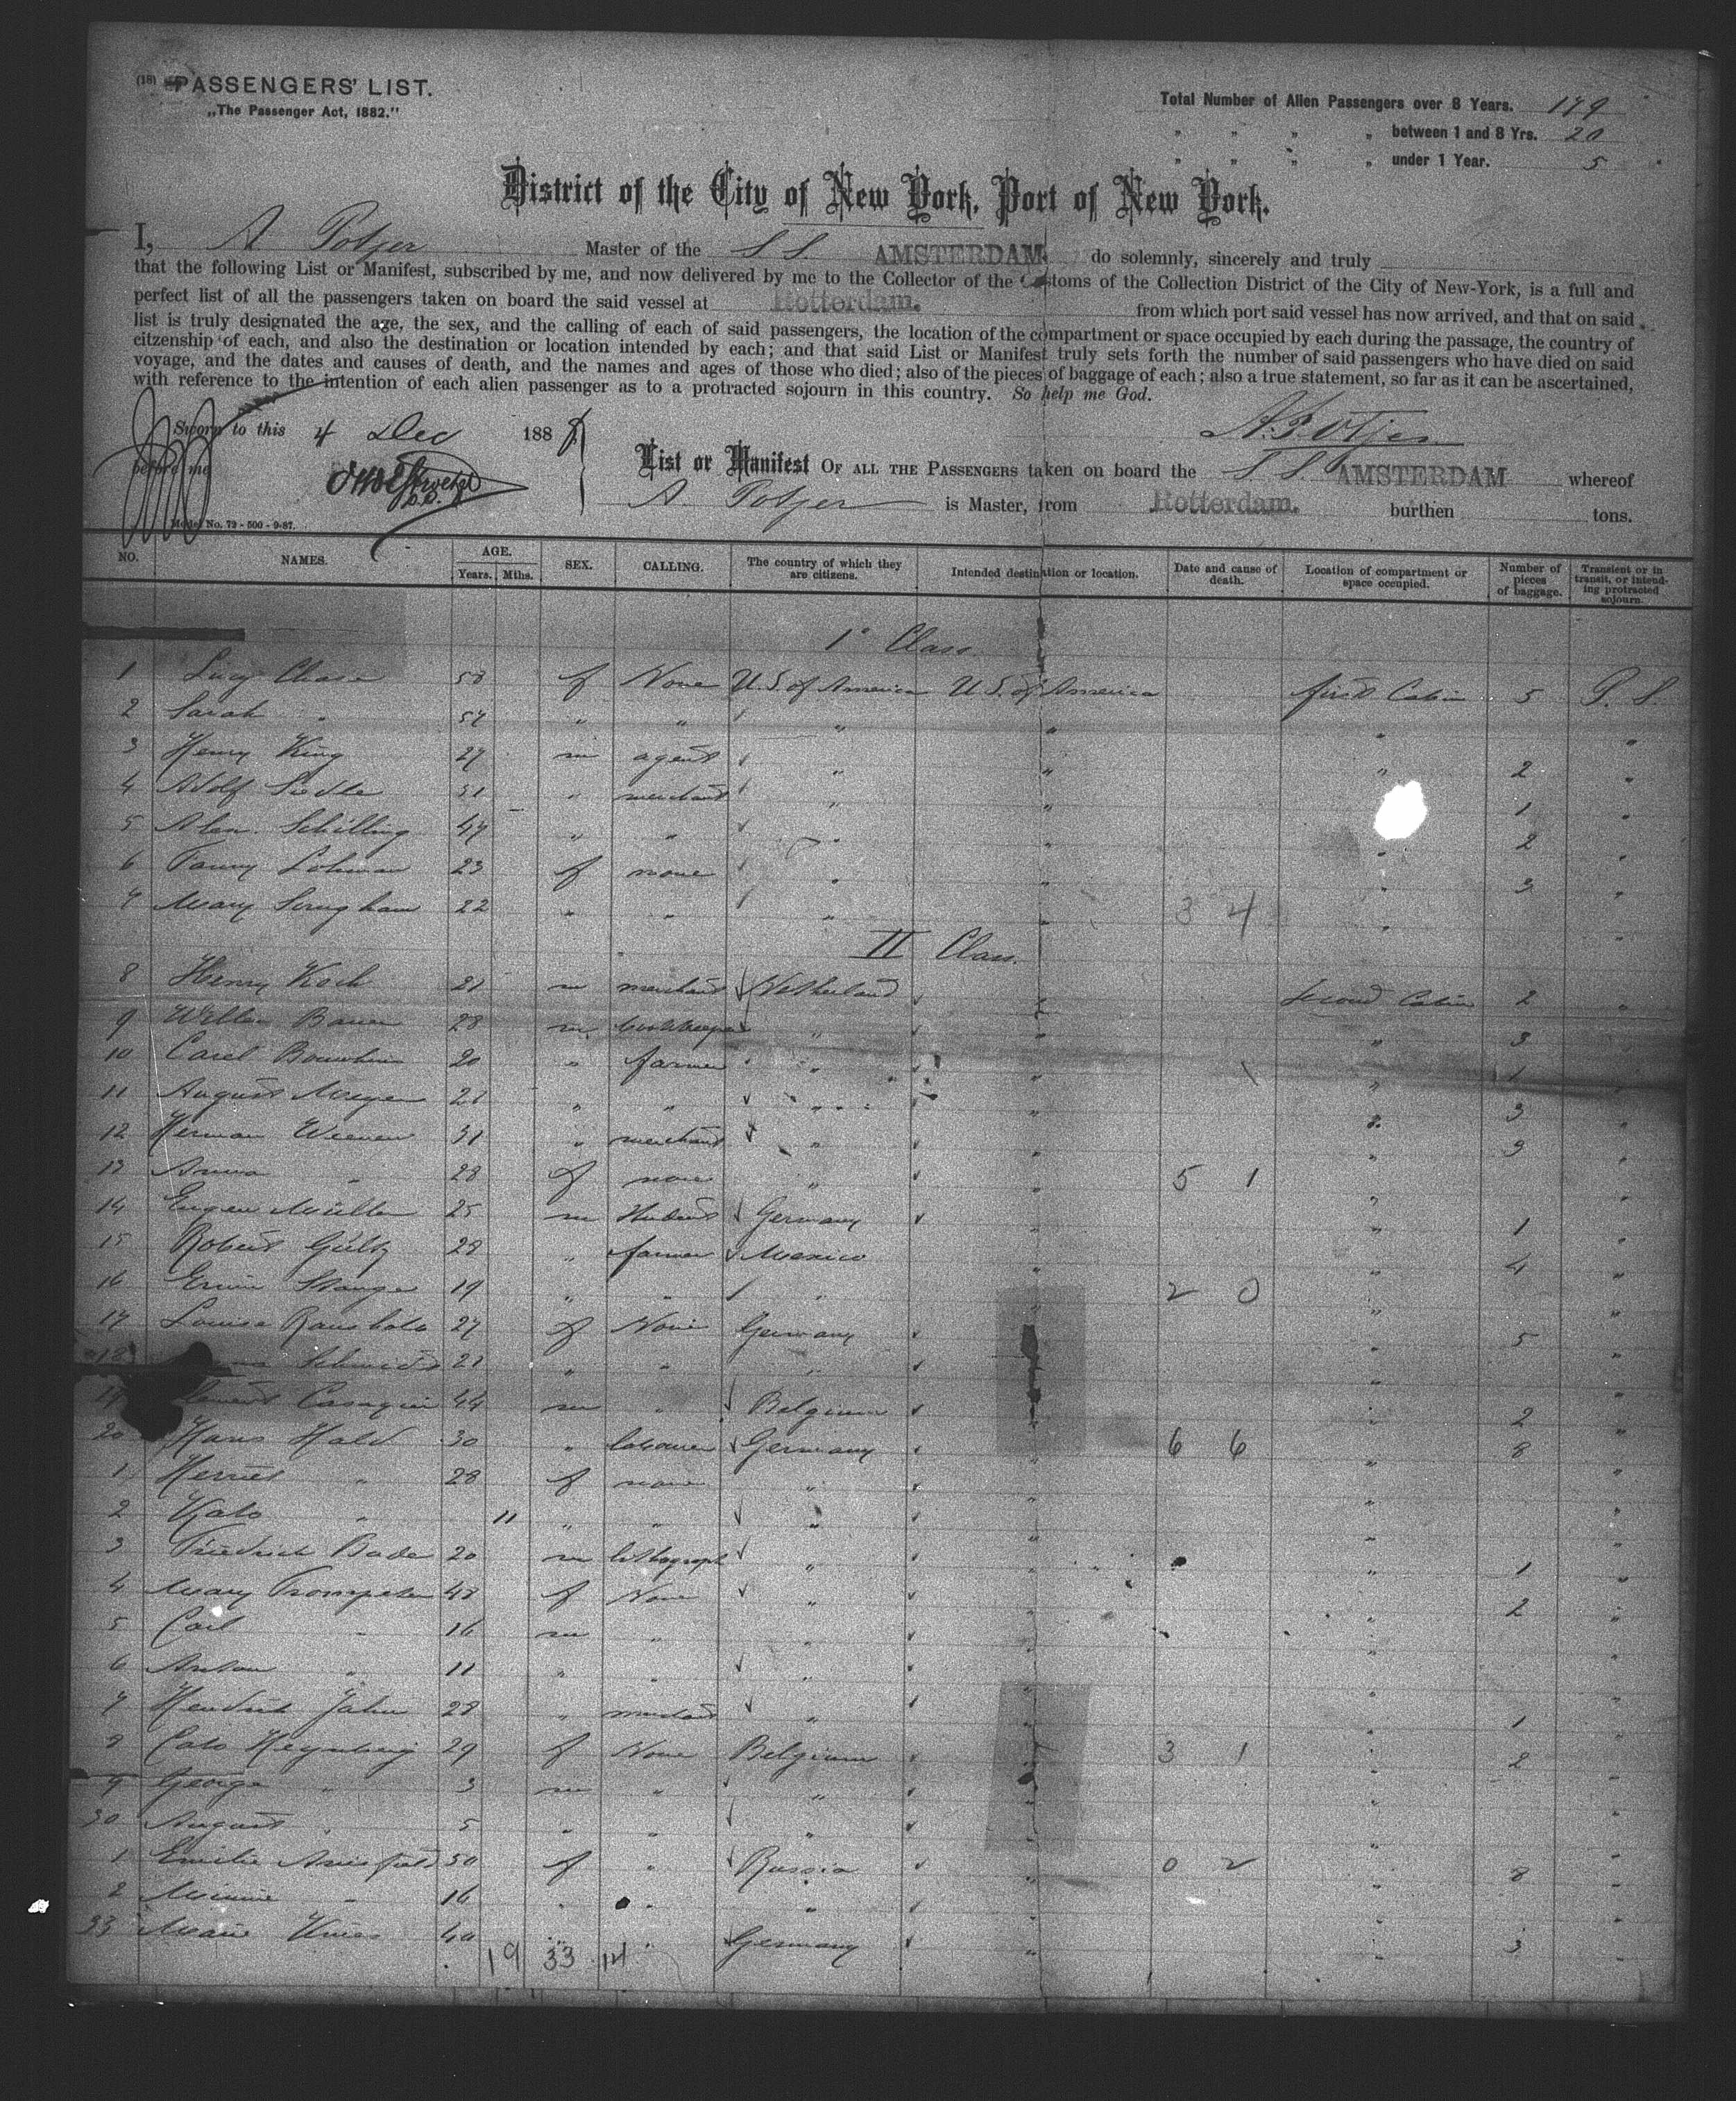 (18) PASSENGERS' LIST.
„The Passenger Act, 1882."
Total Number of Alien Passengers over 8 Years. 179
„ „ „ „ between 1 and 8 Yrs. 20
„ „ „ „ under 1 Year. 5
District of the City of New York, Port of New York.
I, A Potjer Master of the S S. AMSTERDAM do solemnly, sincerely and truly
that the following List or Manifest, subscribed by me, and now delivered by me to the Collector of the Customs of the Collection District of the City of New-York, is a full and
perfect list of all the passengers taken on board the said vessel at Rotterdam. from which port said vessel has now arrived, and that on said
list is truly designated the age, the sex, and the calling of each of said passengers, the location of the compartment or space occupied by each during the passage, the country of
citzenship of each, and also the destination or location intended by each; and that said List or Manifest truly sets forth the number of said passengers who have died on said
voyage, and the dates and causes of death, and the names and ages of those who died; also of the pieces of baggage of each; also a true statement, so far as it can be ascertained,
with reference to the intention of each alien passenger as to a protracted sojourn in this country. So help me God.
Sworn to this 4 Dec 188 A. Potjer
before me
List or Manifest OF ALL THE PASSENGERS taken on board the S S. AMSTERDAM whereof
A Potjer is Master, from Rotterdam. burthen tons.
Model No. 72 - 500 - 9-87.
NO. NAMES. AGE. Years. Mths. SEX. CALLING. The country of which they are citizens. Intended destination or location. Date and cause of death. Location of compartment or space occupied. Number of pieces of baggage. Transient or in transit, or intending protracted sojourn.
1° Class
1 Lucy Chase 58 f None U.S. of America U.S. of America first Cabin 5 P. S.
2 Sarah „ 57 „ „ „ „ „ „
3 Henry King 27 m agent „ „ „ 2 „
4 Adolf 31 „ merchant „ „ 1 „
5 Alex. Schilling 47 „ „ „ „ „ 2 „
6 Fanny Lohman 23 f none „ „ „ 3 „
7 Mary 22 „ „ „ „ 3 4 „ „
II Class.
8 Henry Koch 21 m merchant Netherland „ Second Cabin 2 „
9 Bauer 28 m bookkeeper „ „ „ 3
10 Carel 20 „ farmer „ „ „ 1 „
11 August Meyer 21 „ „ „ „ „ 3 „
12 Herman 31 „ merchant „ „ „ 3 „
13 Anna „ 28 f none „ „ 5 1 „ „
14 Eugen Müller 25 m Student Germany „ „ 1 „
15 Robert 28 „ farmer Mexico „ „ 4 „
16 Erwin Stange 19 „ „ „ „ 2 0 „ „
17 Louise 27 f None Germany „ „ 5 „
18 Schmidt 21 „ „ „ „ „ „
19 44 m „ Belgium „ „ 2 „
20 Hans Hald 30 „ labourer Germany „ 6 6 „ 8 „
1 „ 28 f none „ „ „ „
2 Kato „ 11 „ „ „ „ „ „
3 Friedrich Bade 20 m lithograph „ „ „ 1 „
4 Mary Trompeter 48 f None „ „ „ 2 „
5 Carl „ 16 m „ „ „ „ „
6 Anton „ 11 „ „ „ „ „ „
7 Hendrik Jahn 28 „ merchant „ „ „ 1 „
8 Cato 29 f None Belgium „ 3 1 „ 2 „
9 George „ 3 m „ „ „ „ „
30 August „ 5 „ „ „ „ „ „
1 Emilie 50 f „ Russia „ 0 2 „ 8 „
2 Minnie „ 16 „ „ „ „ „ „
33 Marie 40 „ „ Germany „ „ 3 „
19 33 14